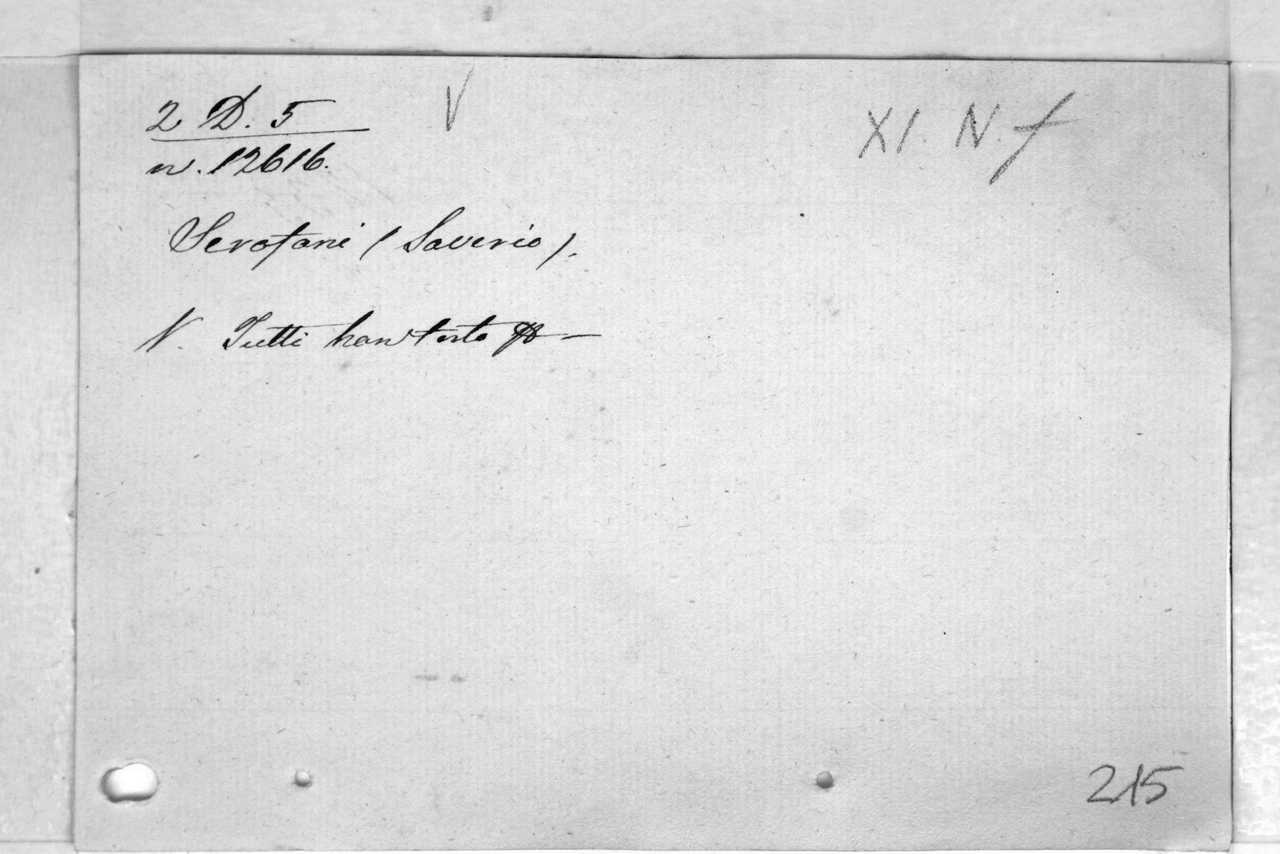 2 D. 5
V
XI. N. f
n. 12616.
Serofani (Saverio).
V. Tutti han torto
215